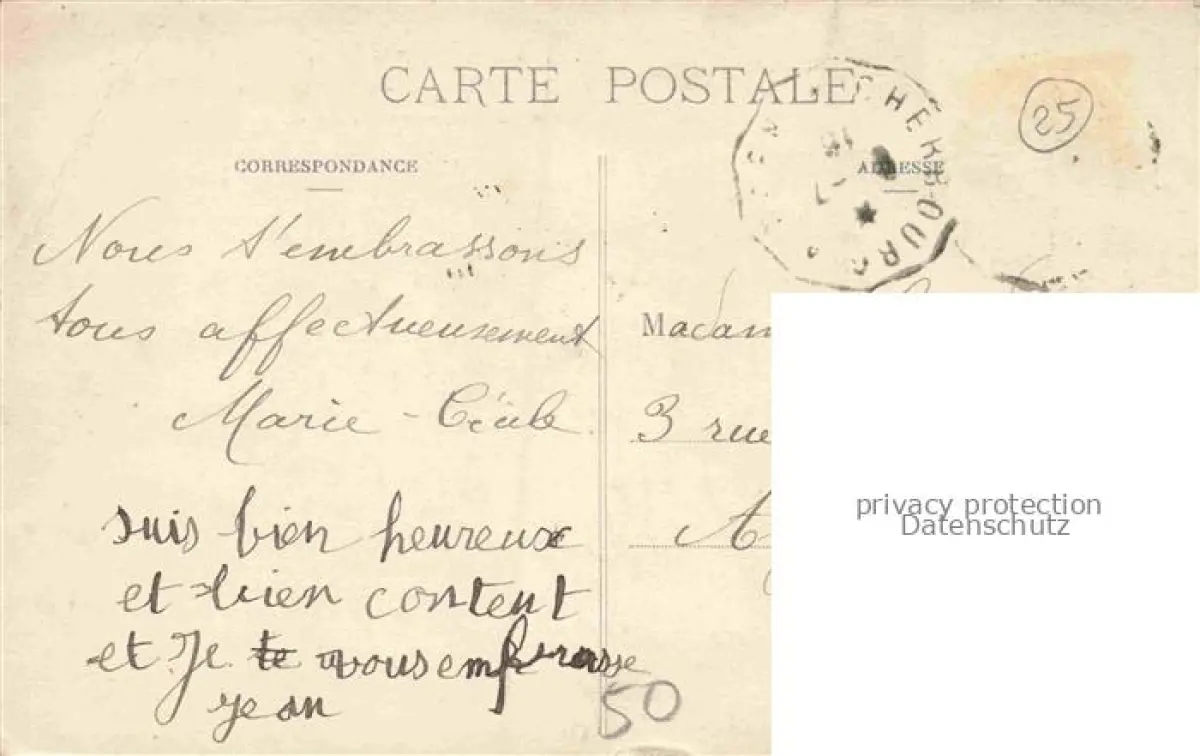 CARTE POSTALE
CHERBOURG
18
25
CORRESPONDANCE
ADRESSE
Nous t'embrassons
tous affectueusement
Marie - Cécile
suis bien heureux
et bien content
et Je te vous embrasse
jean
Madam
3 rue
A
50
privacy protection
Datenschutz